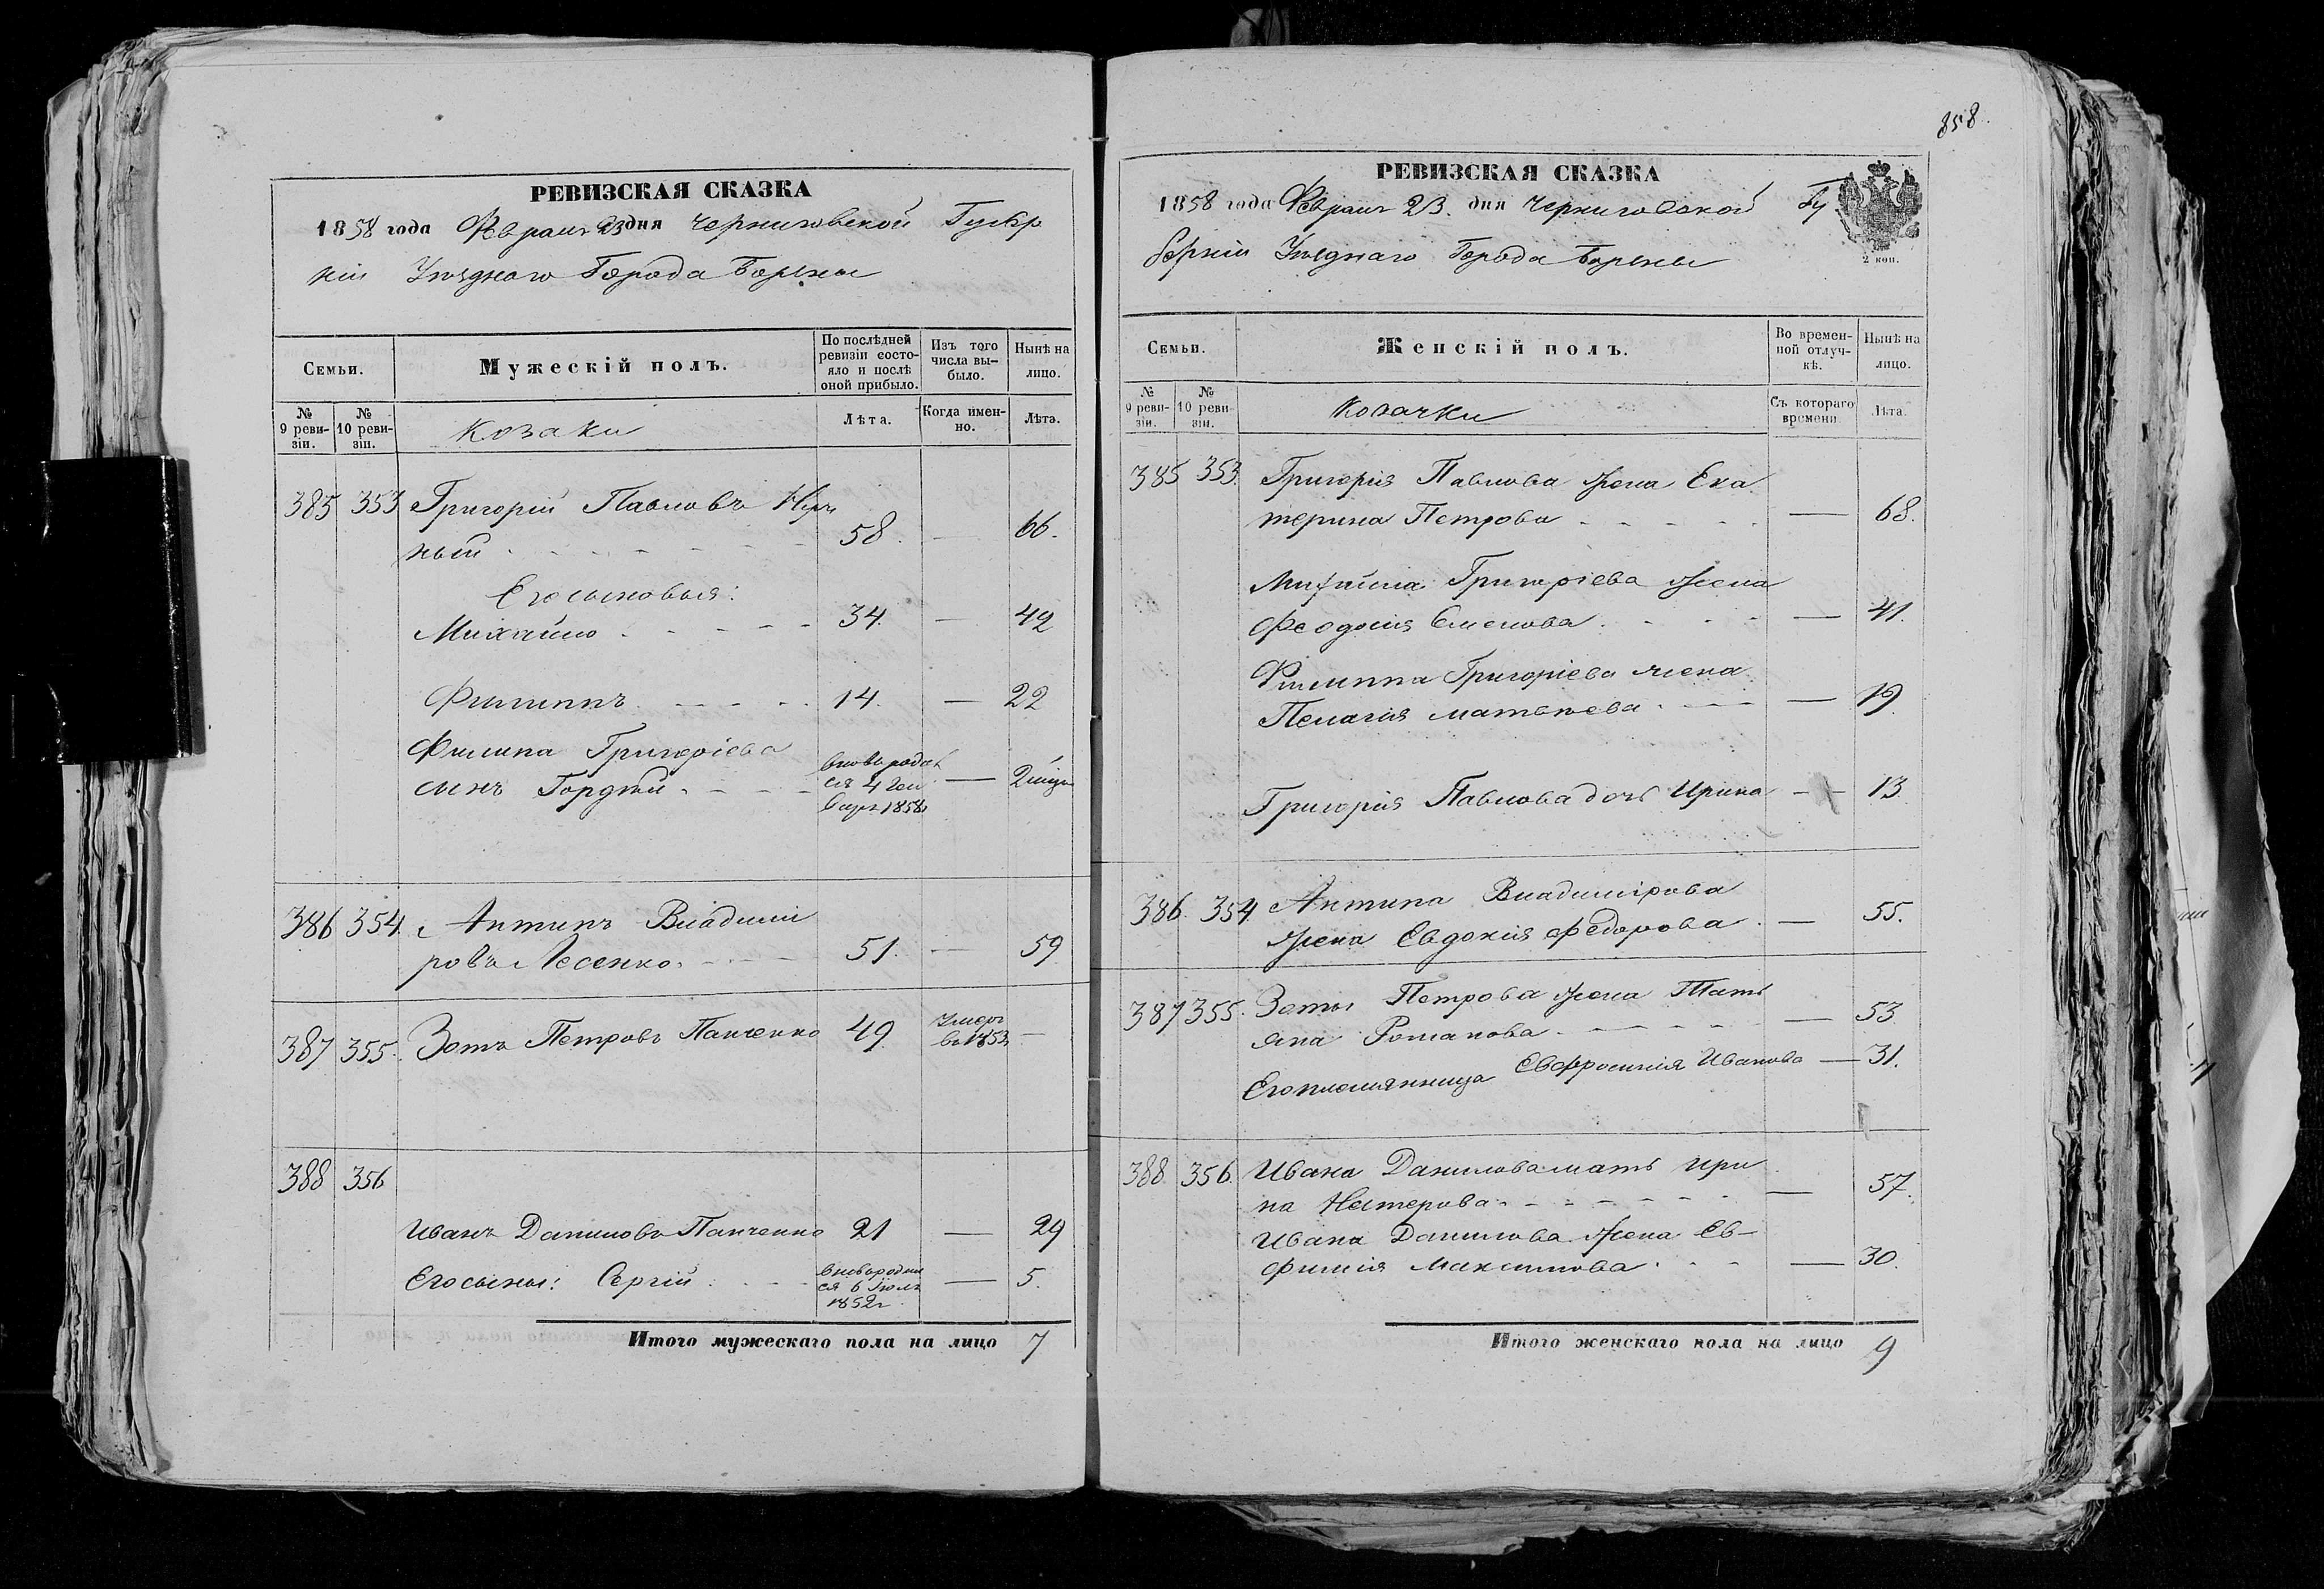 858.
РЕВИЗСКАЯ СКАЗКА
1858 года Февраля 23 дня Черниговской Губер
ніи Уѣзднаго Города Борзны
Семьи.
Мужескій полъ.
По послѣдней ревизіи состо-
яло и послѣ оной прибыло.
Изъ того числа вы-
было.
Нынѣ на лицо.
№ 9 реви-
зіи.
№ 10 реви-
зіи.
Козаки
Лѣта.
Когда имен-
но.
Лѣта.
385 353 Григорій Павловъ
ный 58. — 66.
Его сыновья:
Михайло 34. — 42
Филиппъ 14. — 22
Филипа Григоріева
сынъ Гордѣй вновь родил
ся 4 Ген
варя 1858 — 2 мѣсца
386 354. Антипъ Владимі
ровъ Лесенко 51. — 59
387 355. Зотъ Петровъ Панченко 49 Умеръ
въ 1853 —
388 356
Иванъ Даниловъ Панченко 21 — 29
Его сыны: Сергій вновь родил
ся 6 Іюля
1852 г — 5.
Итого мужескаго пола на лицо 7
РЕВИЗСКАЯ СКАЗКА
1858 года Февраля 23. дня Черниговской Гу
берніи Уѣзднаго Города Борзны
2 коп.
Семьи.
Женскій полъ.
Во времен-
ной отлуч-
кѣ.
Нынѣ на лицо.
№ 9 реви-
зіи.
№ 10 реви-
зіи.
Козачки
Съ котораго времени
Лѣта.
385 353. Григорія Павлова жена Ека
терина Петрова — 68.
Михайла Григоріева жена
Феодосія Семенова — 41.
Филиппа Григоріева жена
Пелагія Матвѣева — 19
Григорія Павлова дочь Ирина — 13.
386. 354. Антипа Владимірова
жена Евдокія Федорова — 55.
387 355. Зота Петрова жена Тать
яна Романова — 53
Его племянница Евфросинія Иванова — 31.
388. 356. Ивана Данилова мать Ири
на Нестерова — 57.
Ивана Данилова жена Ев-
фимія Максимова — 30.
Итого женскаго пола на лицо 9